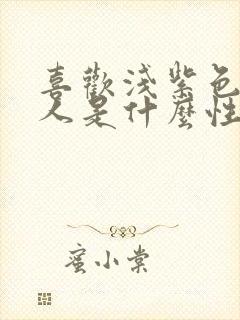 喜歡淺紫色
人是什麼性
蜜小棠